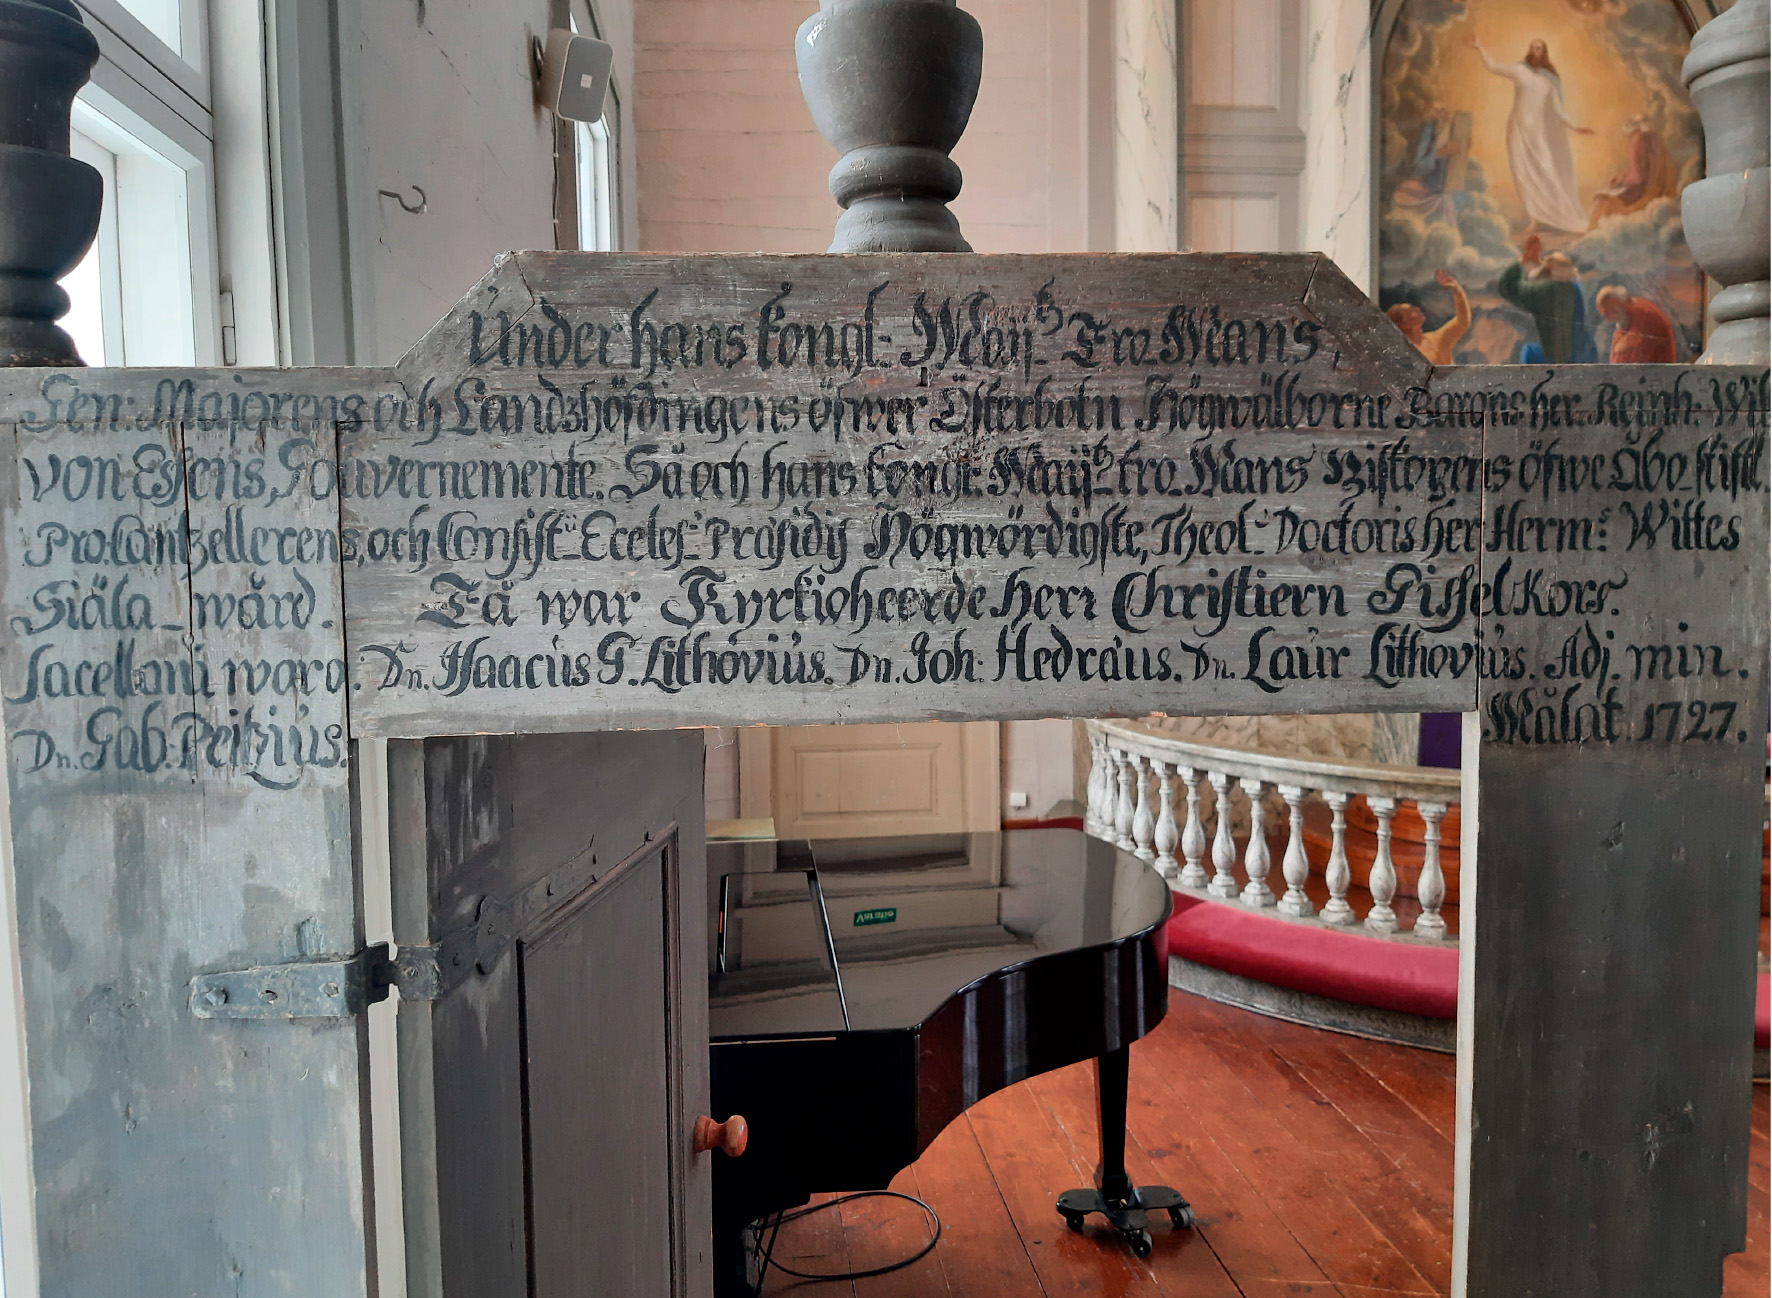 Under hans kongl. Maij:tz Tro_Mans,
Gen: Majorens och Landzhöfdingens öfwer Österbotn Högwälborne Barons her. Reinh: Wil
von Essens, Gouvernemente. Så och hans kongl: Maij:tz tro_Mans Biskopens öfwe Åbo_stift.
Pro:Cantzellerens, och Consist_Eccles_Præsidis Högwördigste, Theol_Doctoris her Herm: Wittes
Siäla_wård. Tå war Kyrkioheerde Herr Christiern GisselKors.
Sacellani woro. Dn. Isaacus G. Lithovius. Dn. Joh: Hedræus. Dn. Laur Lithovius. Adj. min.
Dn. Gab: Peitzius. Målat 1727.